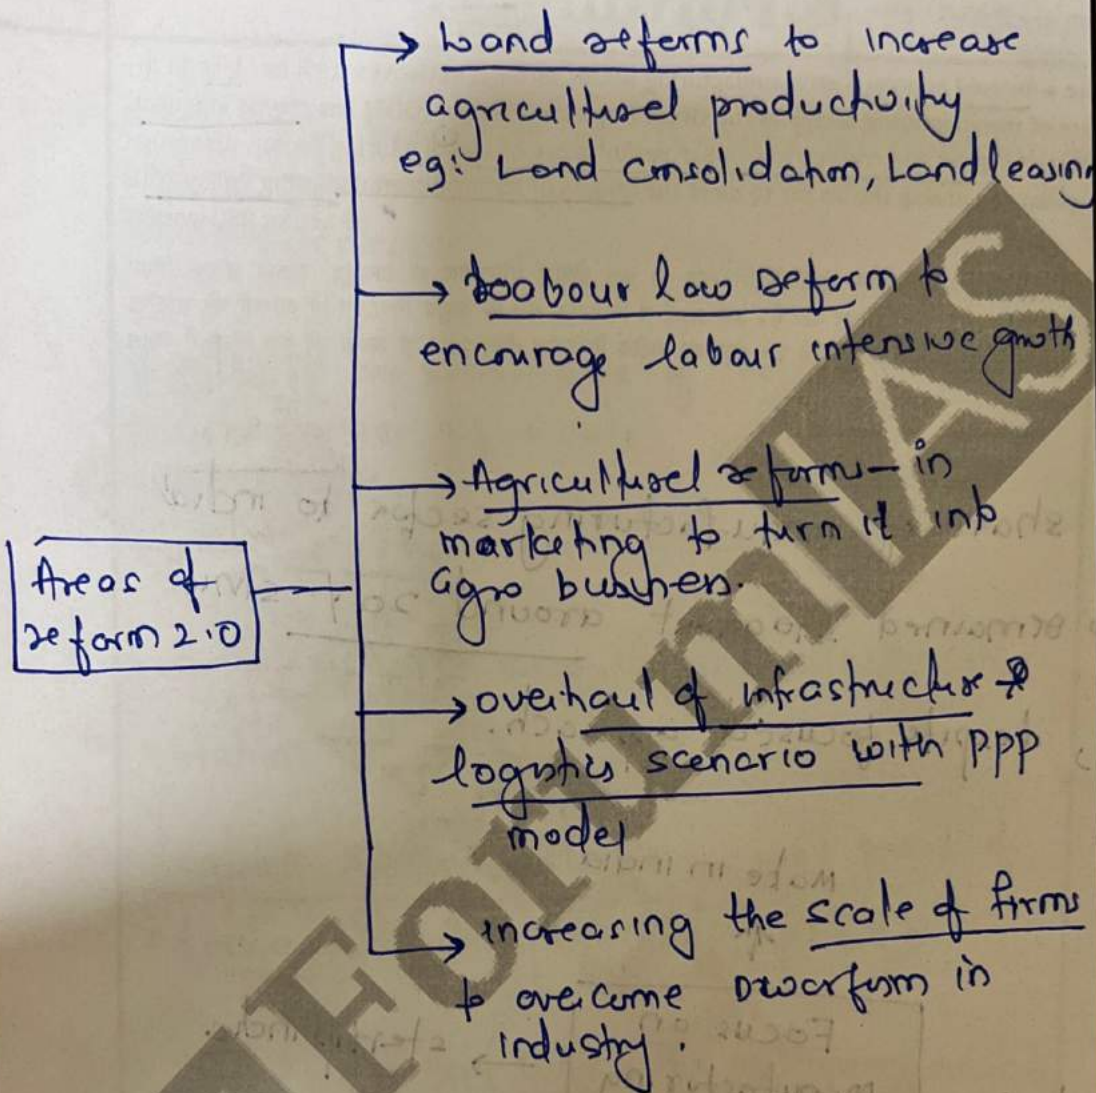 Areas of
reform 2.0
→ Land reforms to increase
agricultural productivity
eg: Land consolidation, Land leasing
→ Labour law reform to
encourage labour intensive growth
→ Agricultural reforms – in
marketing to turn it into
agro business.
→ overhaul of infrastructure &
logistics scenario with PPP
model
→ increasing the scale of firms
to overcome Dwarfism in
industry.
ForumIAS